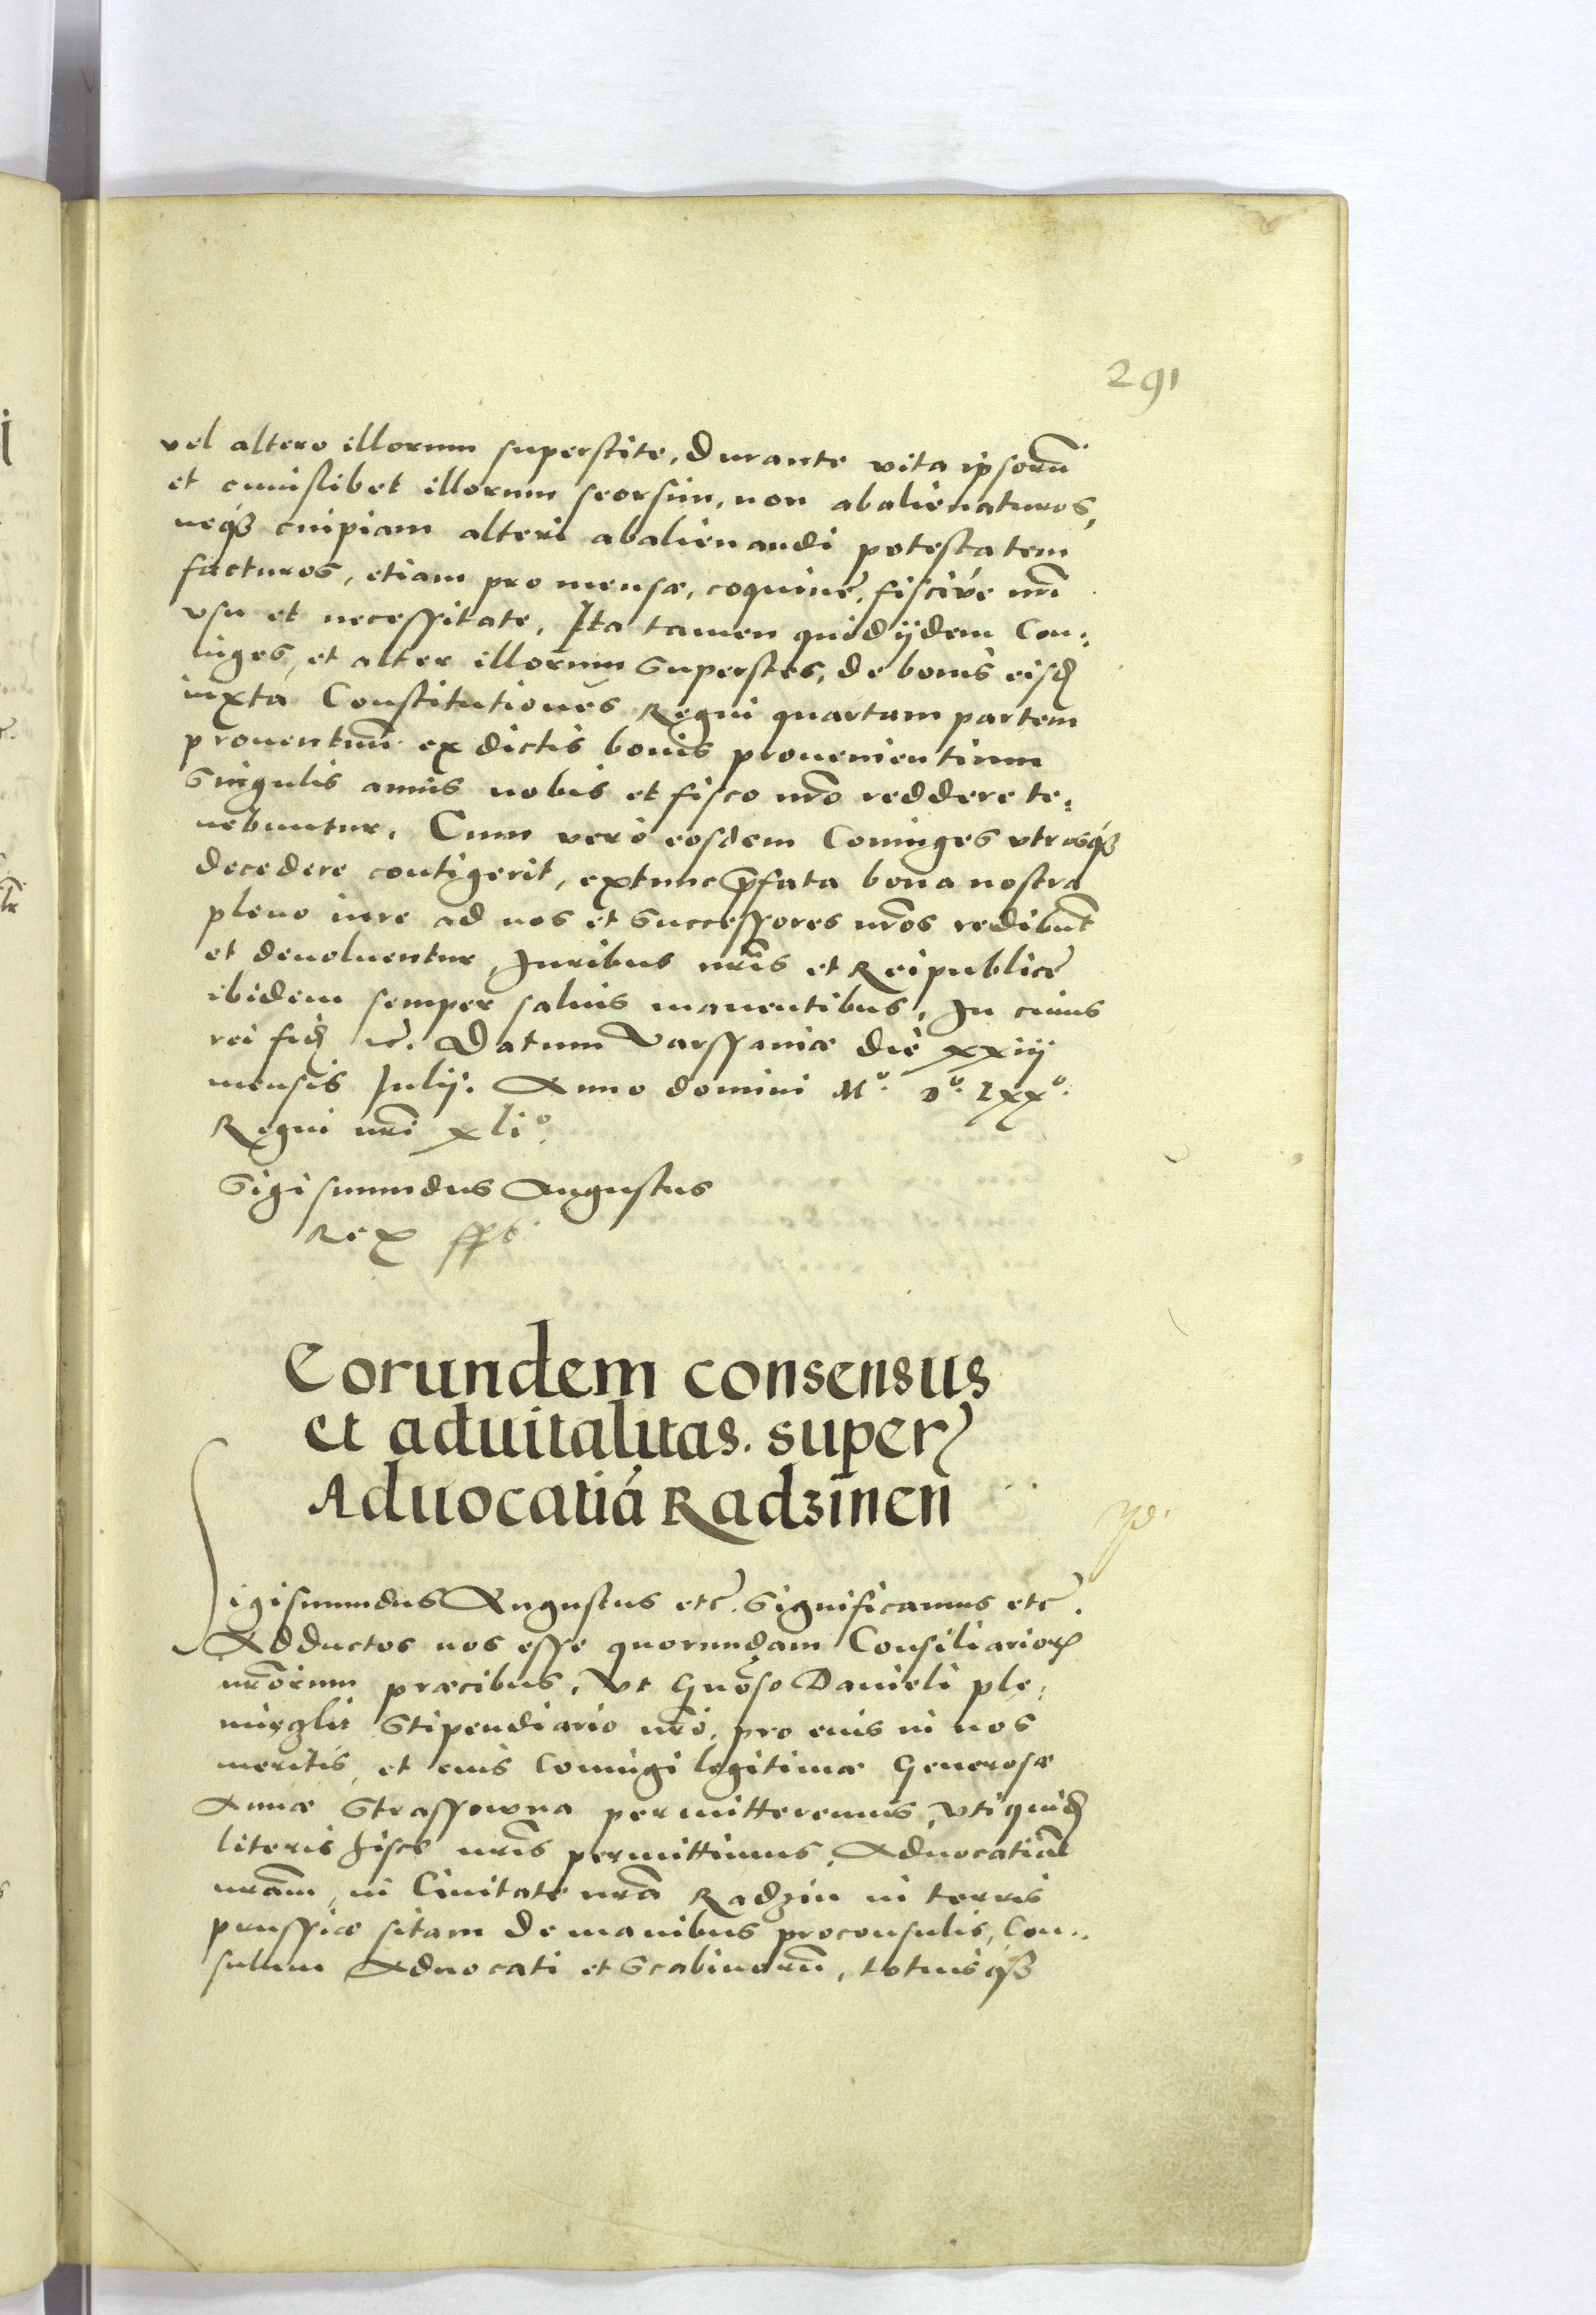 291
vel altero illorum superstite, durante vita ipsorū
et cuiuslibet illorum seorsim, non abalienaturos,
neqꝫ cuipiam alteri abalienandi potestatem
facturos, etiam pro mensæ, coquinę, fisciue nr̄i
vsu et necessitate, Ita tamen quid ijdem Con:
iuges, et alter illorum superstes, de bonis eisd
iuxta Constitutiones Regni quartam partem
prouentuū ex dictis bonis prouenientium
singulis annis nobis et fisco nr̄o reddere te:
nebuntur. Cum vero eosdem Coniuges vtrosqꝫ
decedere contigerit, extunc p̄fata bona nostra
pleno iure ad nos et successores nr̄os redibūt
et deuoluentur, Juribus nr̄is et Reipublicę
ibidem semper saluis manentibus, In cuius
rei fid etc. Datum Varssauiæ die xxiij
mensis Julij. Anno domini Mº. Dº. Lxxº.
Regni nr̄i xliº.
Sigismundus Augustus
Rex sst
Eorundem consensus
et aduitalitas. super
Aduocatiá Radzinen
Sigismundus Augustus etc. Significamus etc.
Adductos nos esse quorundam Consiliarioꝝ
nr̄orum præcibus, Vt Gnōso Danieli ple:
mięglii Stipendiario nr̄o, pro eius in nos
meritis, et eius Coniugi legitimæ Generosæ
Annæ Strassowna permitteremus, vti quid
literis hisce nr̄is permittimus, Aduocatiā
nr̄am, in Ciuitate nr̄a Radzin in terris
prussiæ sitam de manibus proconsulis, Con:
sulum Aduocati et Scabinorū, totiusqꝫ